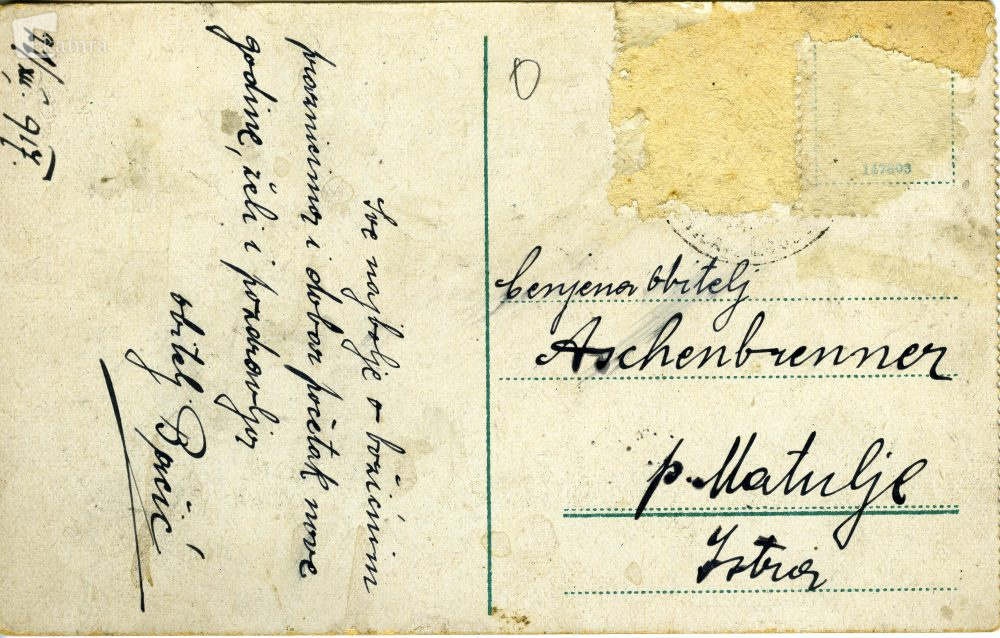 Sve najbolje o božićnim
praznicima i dobar početak nove
godine, želi i pozdravlja
obitelj Bačić
/XII. 917.
Cenjena Obitelj
Aschenbrenner
p. Matulje
Istra
147603
Kamra